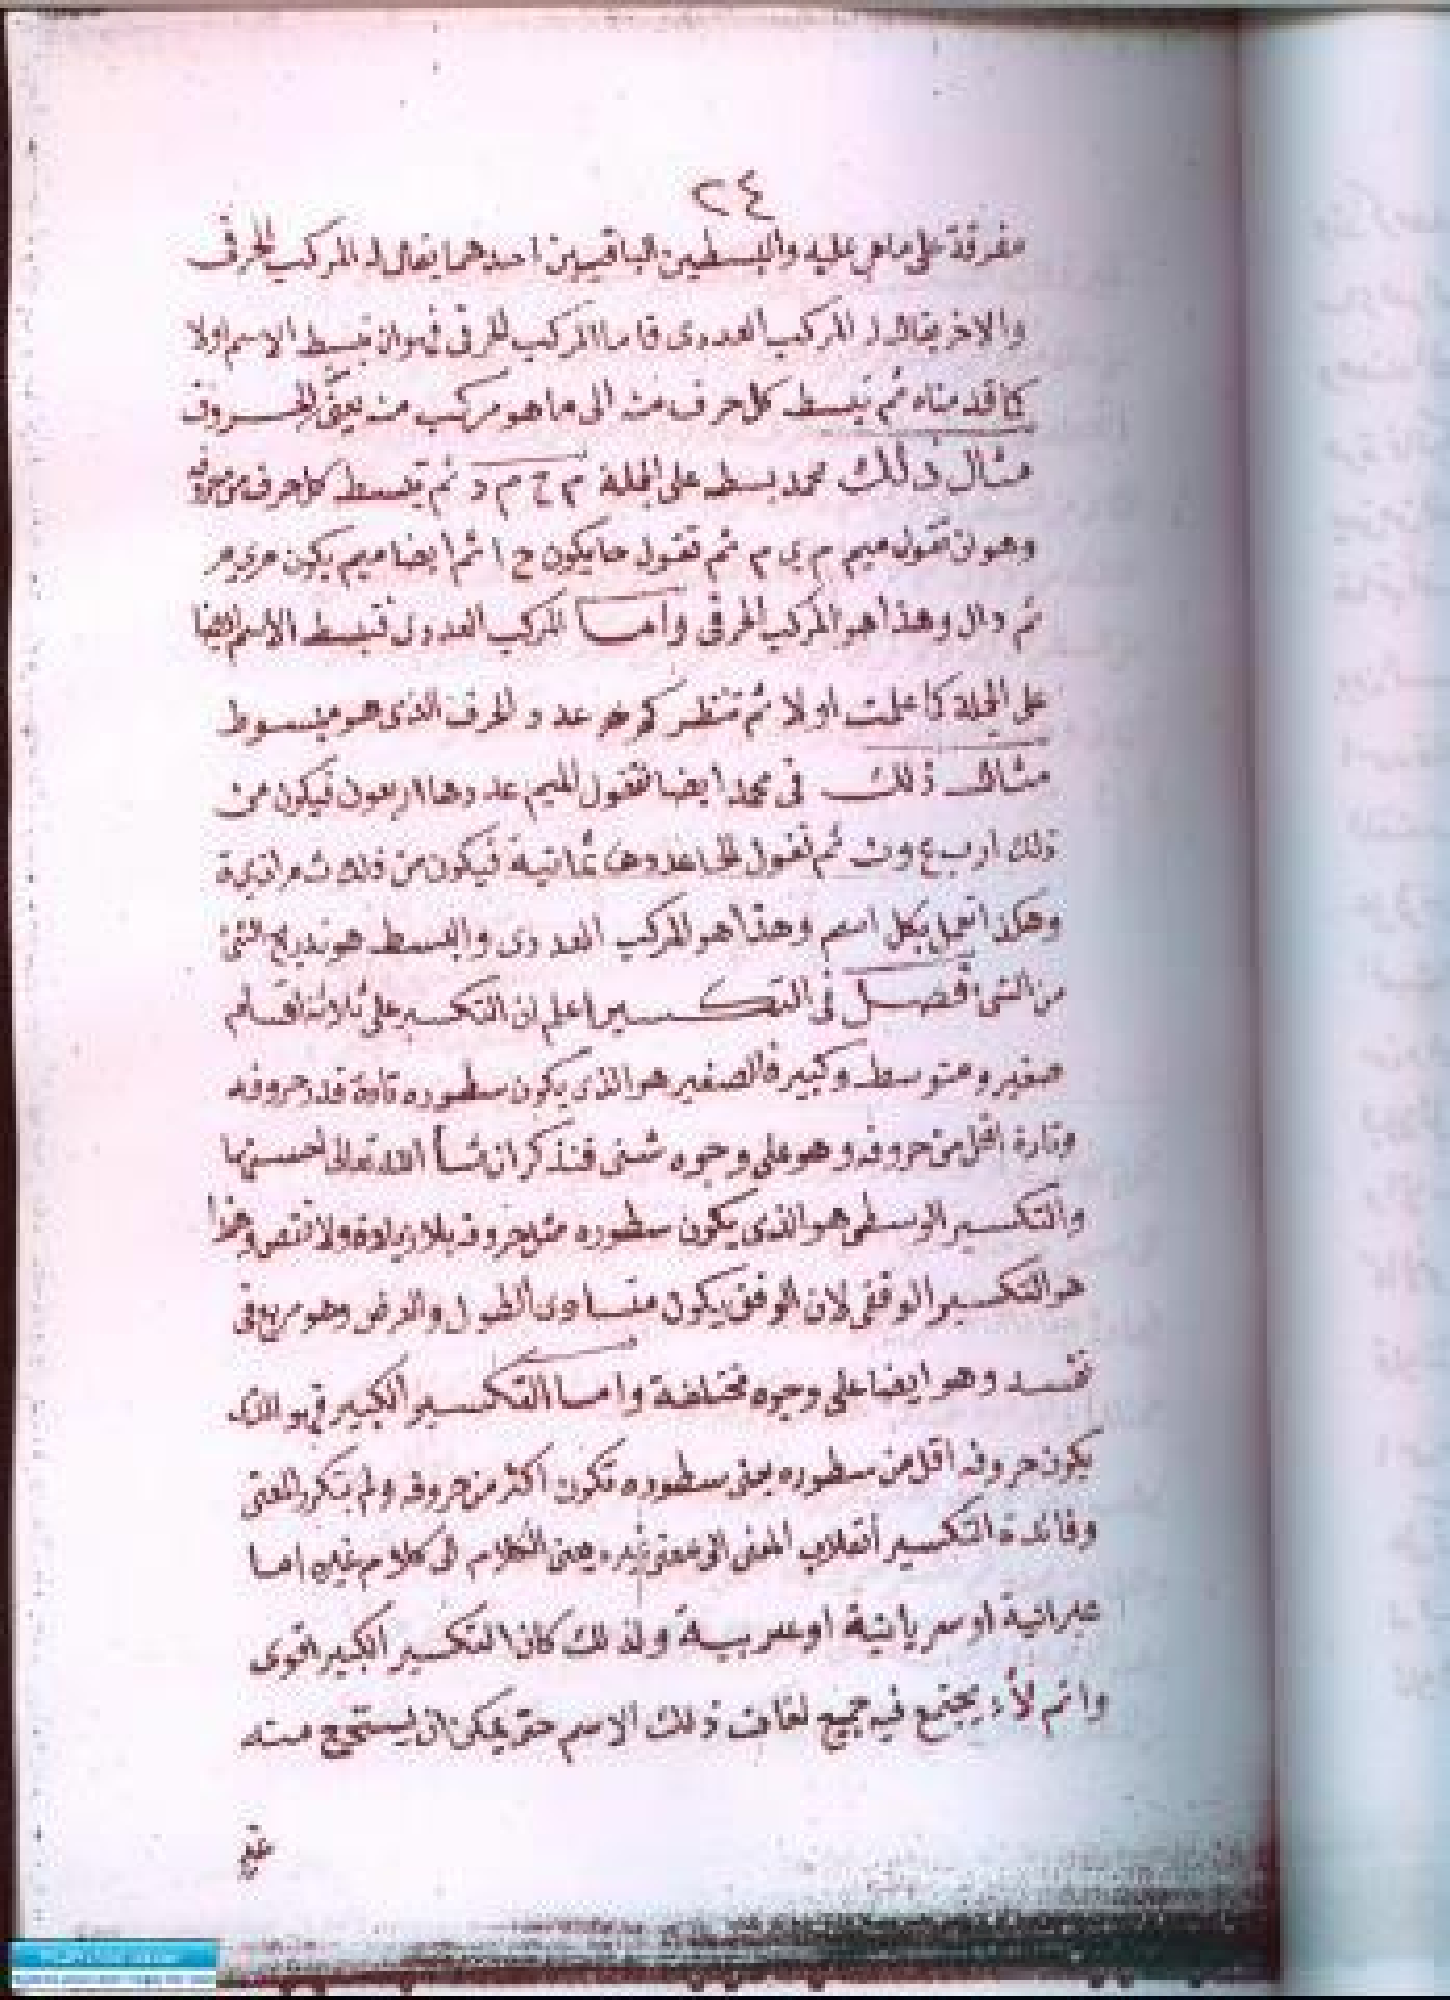 ٢٤
مفرقة على ماهى عليه والبسطين الباقيين احدهما يقال له المركب الحرفى
والاخر يقال له المركب العددى فاما المركب الحرفى فهو ان تبسط الاسم اولا
كما قدمناه ثم تبسط كل حرف منه الى ما هو مركب منه يعنى الحروف
مثال ذلك محمد بسطه على الجملة م ح م د ثم تبسط كل حرف من حروفه
وهو ان تقول ميم م ي م ثم تقول حا يكون ح ا ثم ايضا ميم يكون م ي م
ثم دال وهذا هو المركب الحرفى واما المركب العددى فتبسط الاسم ايضا
على الجملة كما علمت اولا ثم تنظر كم هو عدد الحرف الذى هو مبسوط
مثال ذلك فى محمد ايضا فتقول الميم عددها اربعون فيكون من
ذلك ا ر ب ع و ن ثم تقول الحا عددها ثمانية فيكون من ذلك ث م ا ن ي ة
وهكذا تعمل بكل اسم وهذا هو المركب العددى والبسط هو تدريج الشئ
من الشئ فصل فى التكسير اعلم ان التكسير على ثلاثة اقسام
صغير ومتوسط وكبير فالصغير هو الذى يكون سطوره تارة قدر حروفه
وتارة اقل من حروفه وهو على وجوه شتى فنذكر ان شا الله تعالى احسنها
والتكسير الوسطى هو الذى يكون سطوره مثل حروفه بلا زيادة ولا نقص وهذا
هو التكسير الوفقى لان الوفق يكون متساوى الطول والعرض وهو مربع فى
نفسه وهو ايضا على وجوه مختلفة واما التكسير الكبير فهو الذى
يكون حروفه اقل من سطوره يعنى سطوره تكون اكثر من حروفه ولم يتكرر المعنى
وفائدة التكسير انقلاب المعنى الى معنى غيره يعنى الكلام الى كلام غيره اما
عبرانية او سريانية او عربية ولذلك كان التكسير الكبير اقوى
واتم لأنه يجتمع فيه جميع لغات ذلك الاسم حتى يمكن ان يستخرج منه